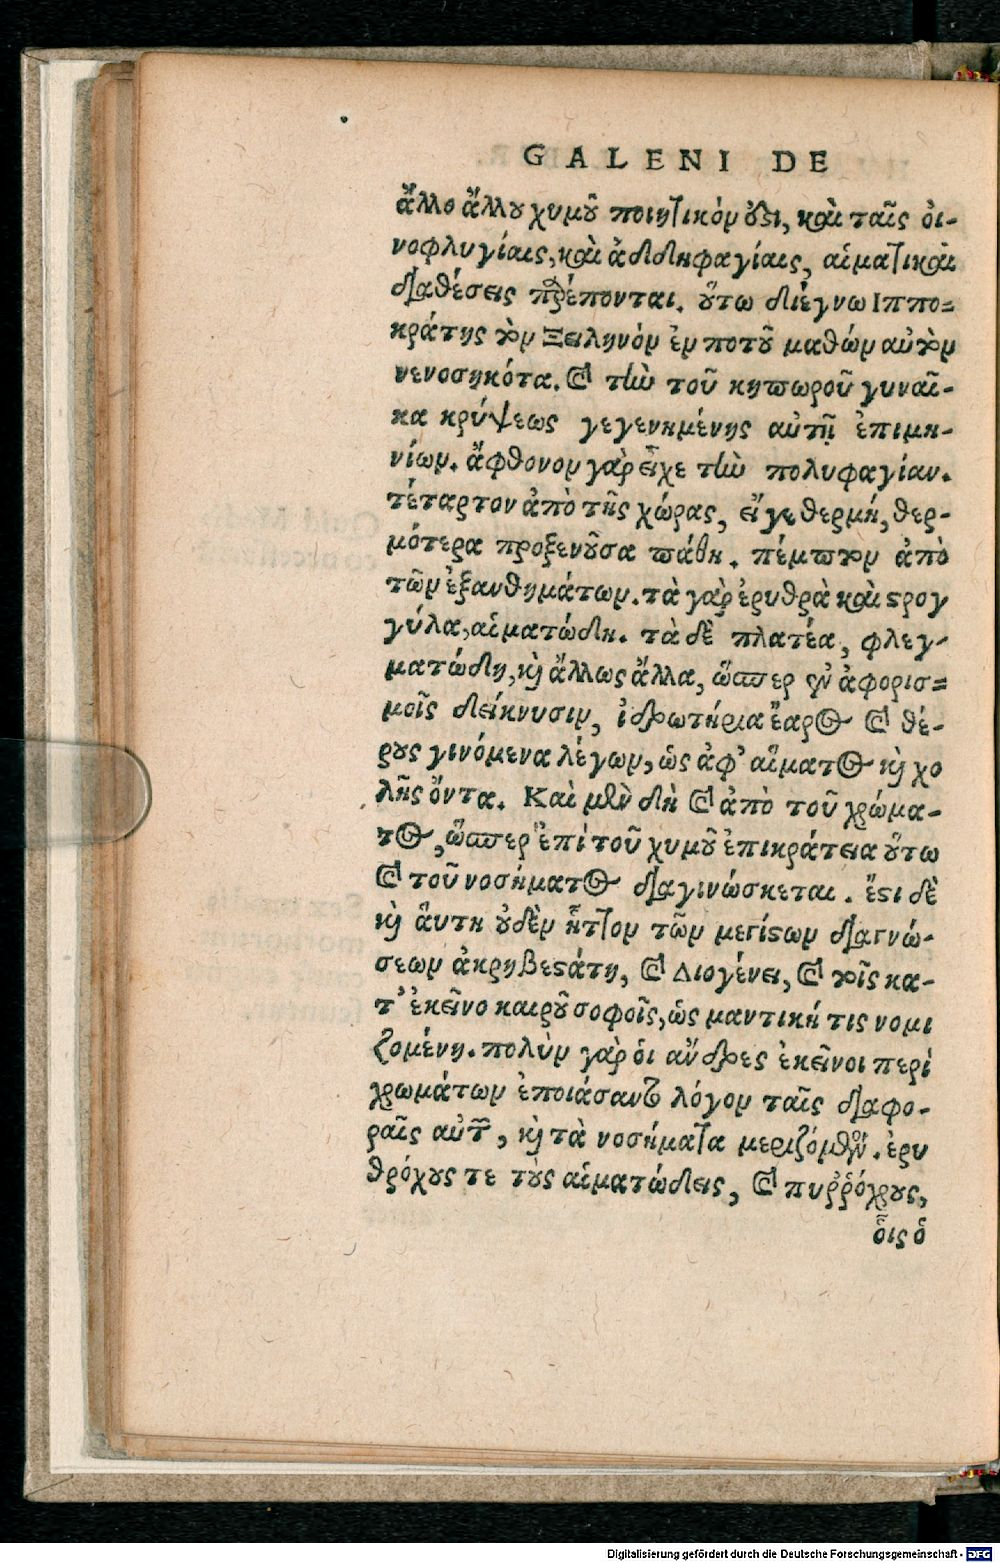 GALENI DE
ἄλλο ἄλλου χυμοῦ ποιητικόν ἐστι, καὶ ταῖς οἰ-
νοφλυγίαις, καὶ ἀδδηφαγίαις, αἱματικαὶ
διαθέσεις παρέπονται. οὕτω διέγνω Ιππο=
κράτης τὸν Σειληνὸν ἐν ποτοῦ μαθὼν αὐτὸν
νενοσηκότα. καὶ τὴν τοῦ κηπωροῦ γυναῖ-
κα κρύψεως γεγενημένης αὐτῇ ἐπιμη-
νίων. ἄφθονον γὰρ εἶχε τὴν πολυφαγίαν.
τέταρτον ἀπὸ τῆς χώρας, εἴγε θερμή, θερ-
μότερα προξενοῦσα πάθη. πέμπτον ἀπὸ
τῶν ἐξανθημάτων. τὰ γὰρ ἐρυθρὰ καὶ στρογ
γύλα, αἱματώδη. τὰ δὲ πλατέα, φλεγ-
ματώδη, καὶ ἄλλως ἄλλα, ὥσπερ ἐν ἀφορισ=
μοῖς δείκνυσιν, ἱδρωτήρια ἔαρος καὶ θέ-
ρους γινόμενα λέγων, ὡς ἀφ’ αἵματος καὶ χο
λῆς ὄντα. Καὶ μὲν δὴ καὶ ἀπὸ τοῦ χρώμα-
τος, ὥσπερ ἐπὶ τοῦ χυμοῦ ἐπικράτεια οὕτω
καὶ τοῦ νοσήματος διαγινώσκεται. ἔστι δὲ
καὶ ἅυτη οὐδὲν ἧττον τῶν μεγίστων διαγνώ-
σεων ἀκρηβεστάτη, καὶ Διογένει, καὶ τοῖς κα-
τ’ ἐκεῖνο καιροῦ σοφοῖς, ὡς μαντική τις νομι
ζομένη. πολὺν γὰρ ὁι ἄνδρες ἐκεῖνοι περὶ
χρωμάτων ἐποιάσαντο λόγον ταῖς διαφο-
ραῖς αὐτῶν, καὶ τὰ νοσήματα μεριζόμενοι. ἐρυ
θρόχους τε τοὺς αἱματώδεις, καὶ πυῤῥόχρους,
οἷς ὁ
Digitalisierung gefördert durch die Deutsche Forschungsgemeinschaft - DFG